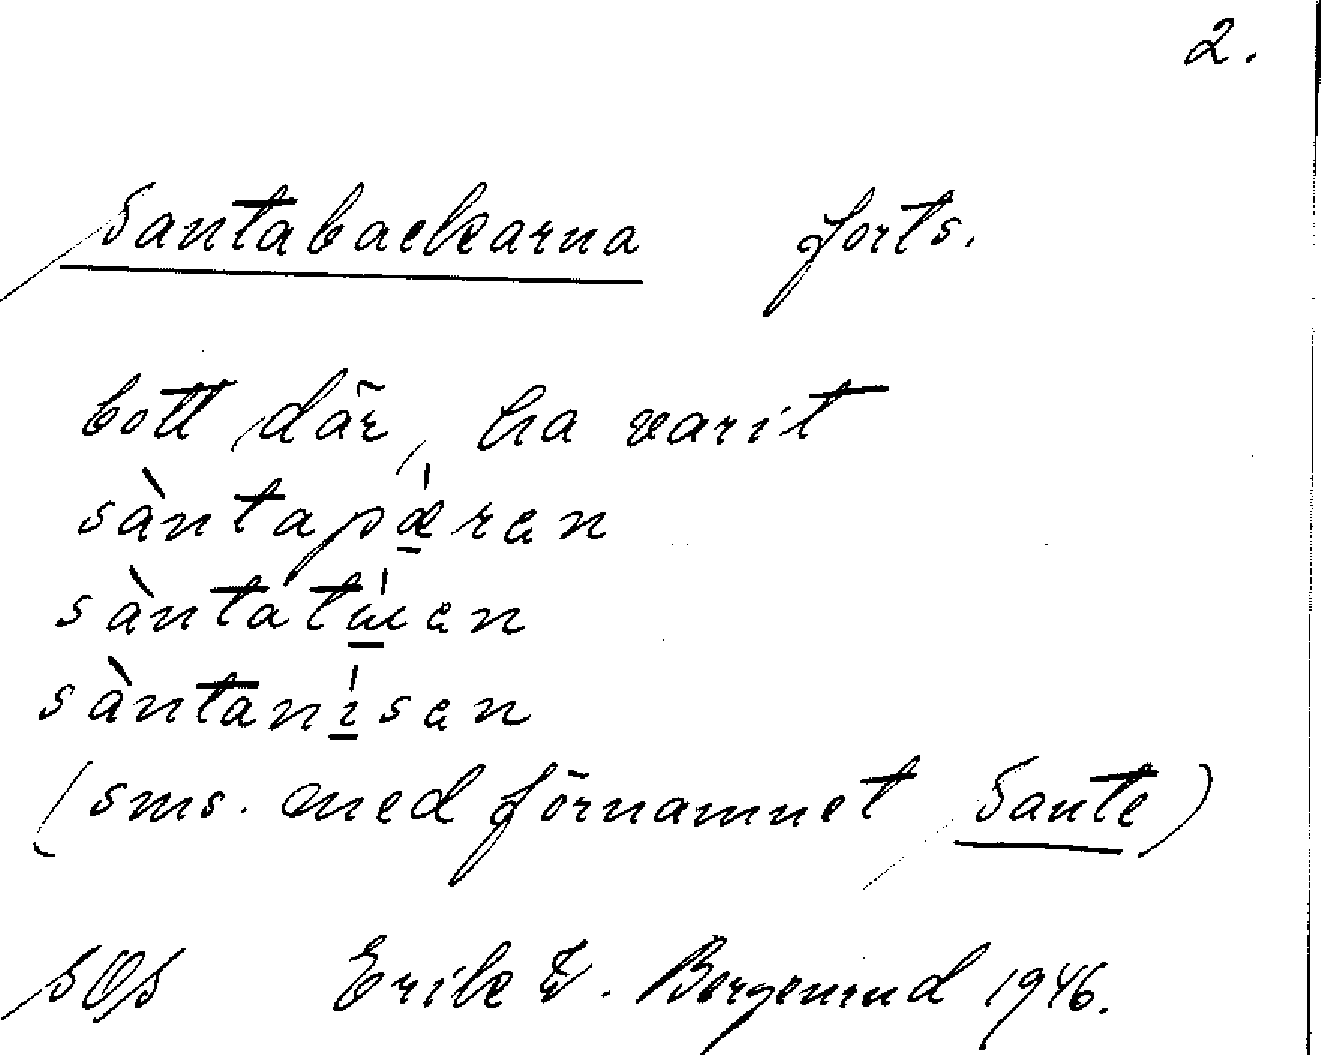 2.
Santabackarna forts.
bott där, ha varit
sàntapǽ̱ren
sàntatẃ̱en
sàntaní̱sen
(sms. med förnamnet Sante)
Erik W. Bergenrud 1946.